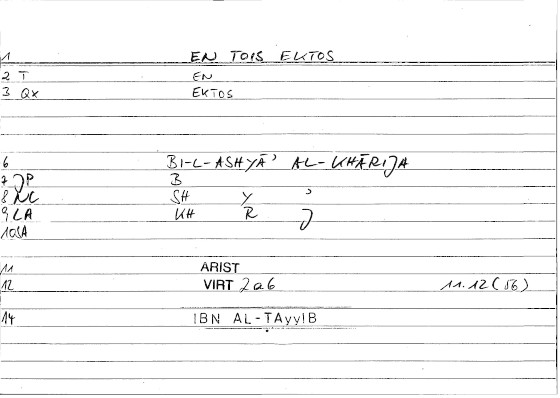 1 EN TOIS EKTOS
2 T EN
3 QX EKTOS
6 BI-L-ASHYĀʾ AL-KHĀRIJA
7 JP B
8 NC SH Y ʾ
9 LA KH R J
10 SA
11 ARIST
12 VIRT 2a6 11.12(56)
14 IBN AL-TAyyIB